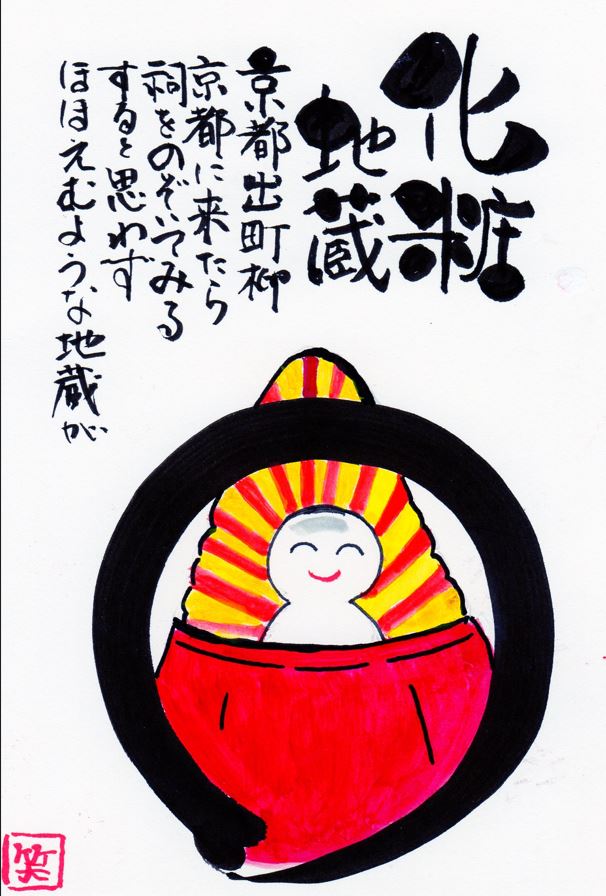 化粧
地蔵
京都出町柳
京都に来たら
祠をのぞいてみる
すると思わず
ほほえむような地蔵が
笑